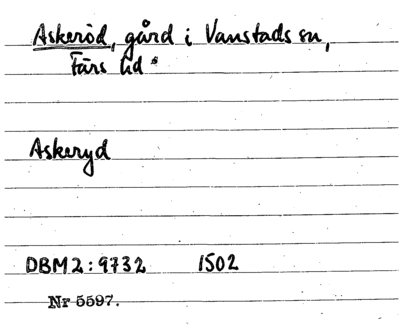 Askeröd, gård i Vanstads sn,
Färs hd
Askeryd
DBM2:9732 1502
Nr 5597.